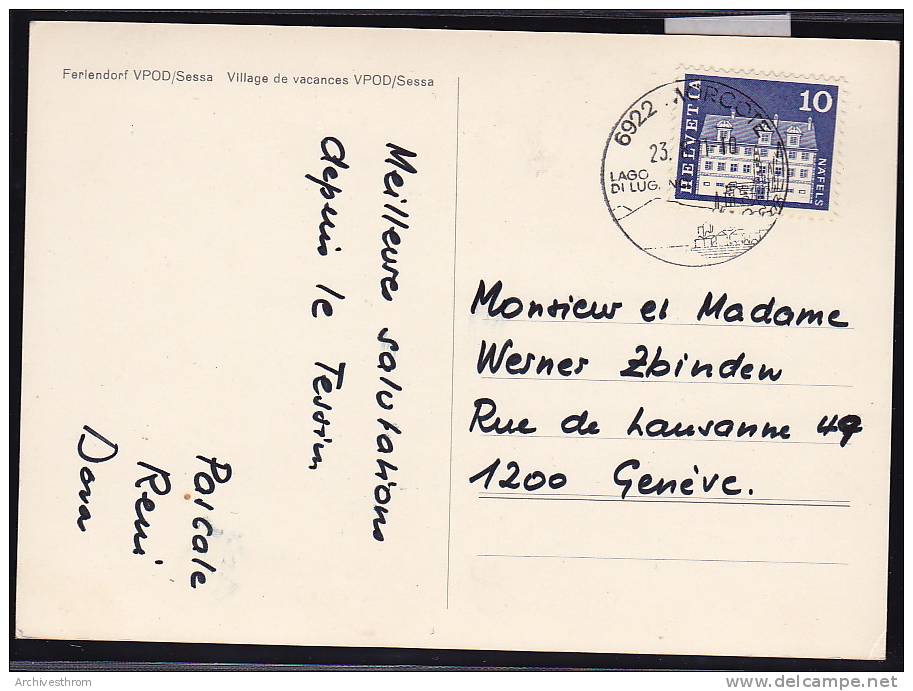 Feriendorf VPOD/Sessa Village de vacances VPOD/Sessa
Meilleures salutations
depuis le Tessin
Pascale
Reni
Dona
6922 MORCOTE
23.
LAGO
DI LUG
HELVETIA
10
NÄFELS
Monsieur et Madame
Werner Zbinden
Rue de Lausanne 49
1200 Genève.
Archivesthrom
www.delcampe.net